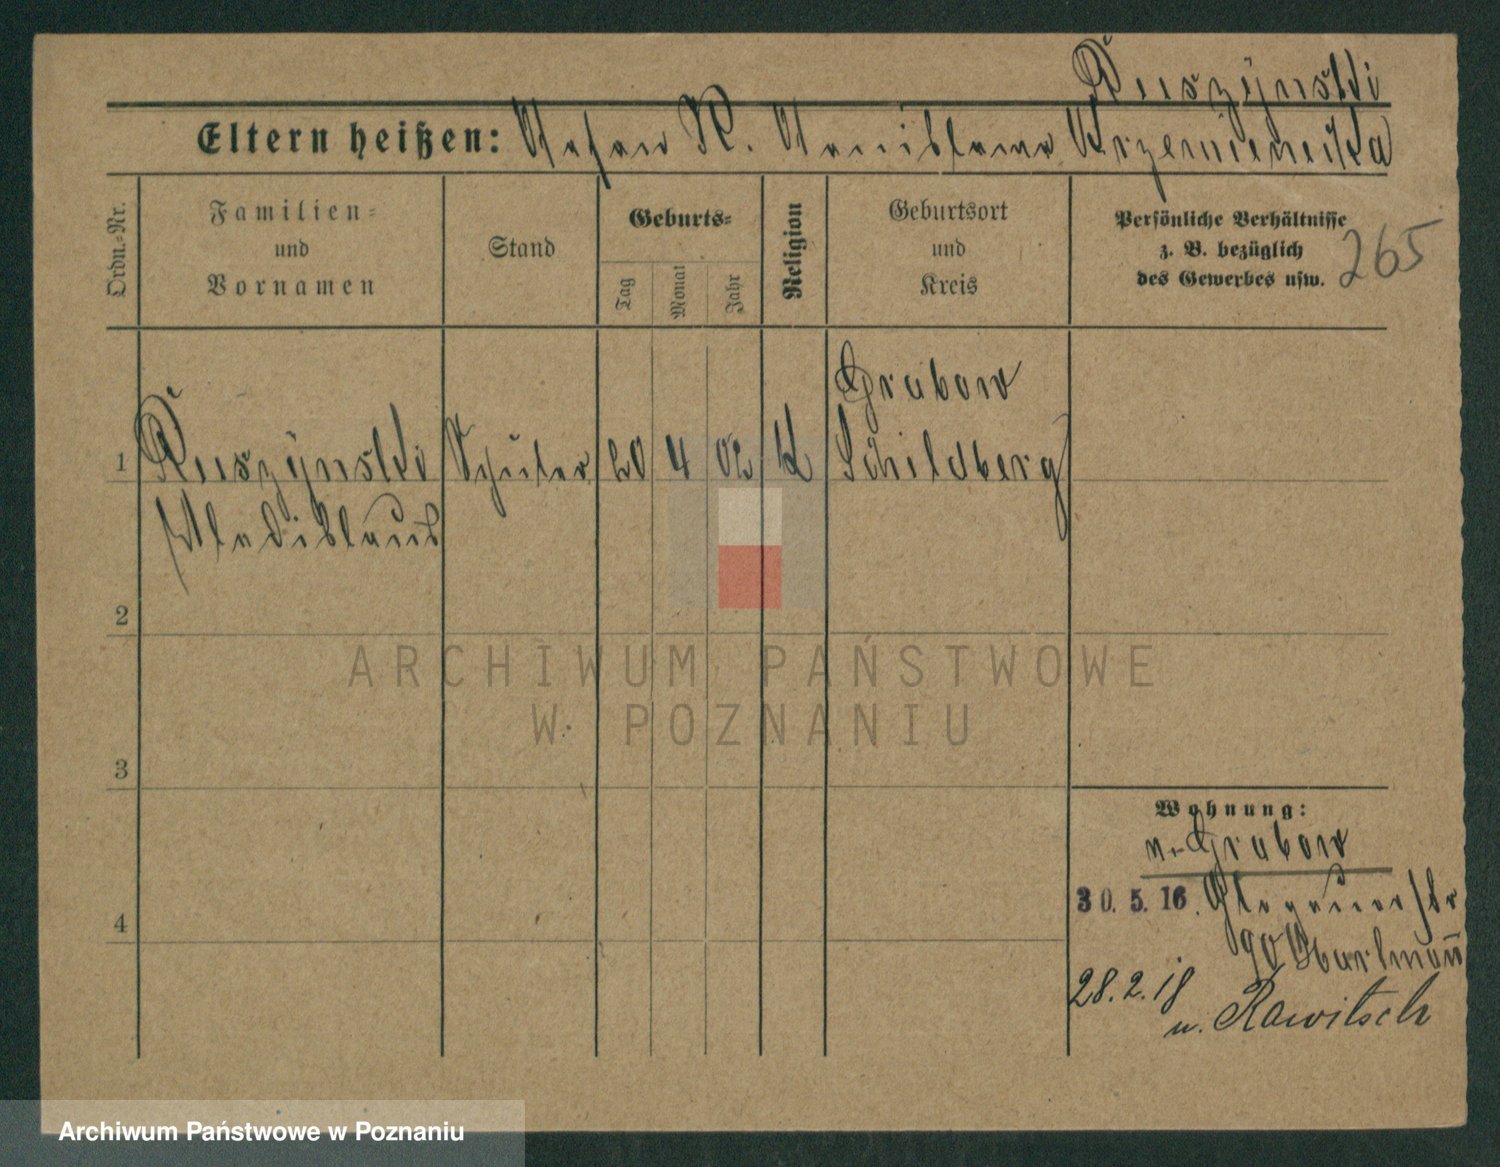 Ruszÿnski
Eltern heißen: Stefan R. Stanislawa Krzemieniecka
Ordn.-Nr.
Familien-
und
Vornamen
Stand
Geburts-
Tag
Monat
Jahr
Religion
Geburtsort
und
Kreis
Persönliche Verhältnisse
z. B. bezüglich
des Gewerbes usw.
265
1
Ruszÿnski
Wladislaus
Schüler
20
4
02
K
Grabow
Schildberg
2
3
4
Wohnung:
v. Grabow
30. 5. 16. Glogauerstr
90
28.2.18
n. Rawitsch
ARCHIWUM PAŃSTWOWE
W POZNANIU
Archiwum Państwowe w Poznaniu